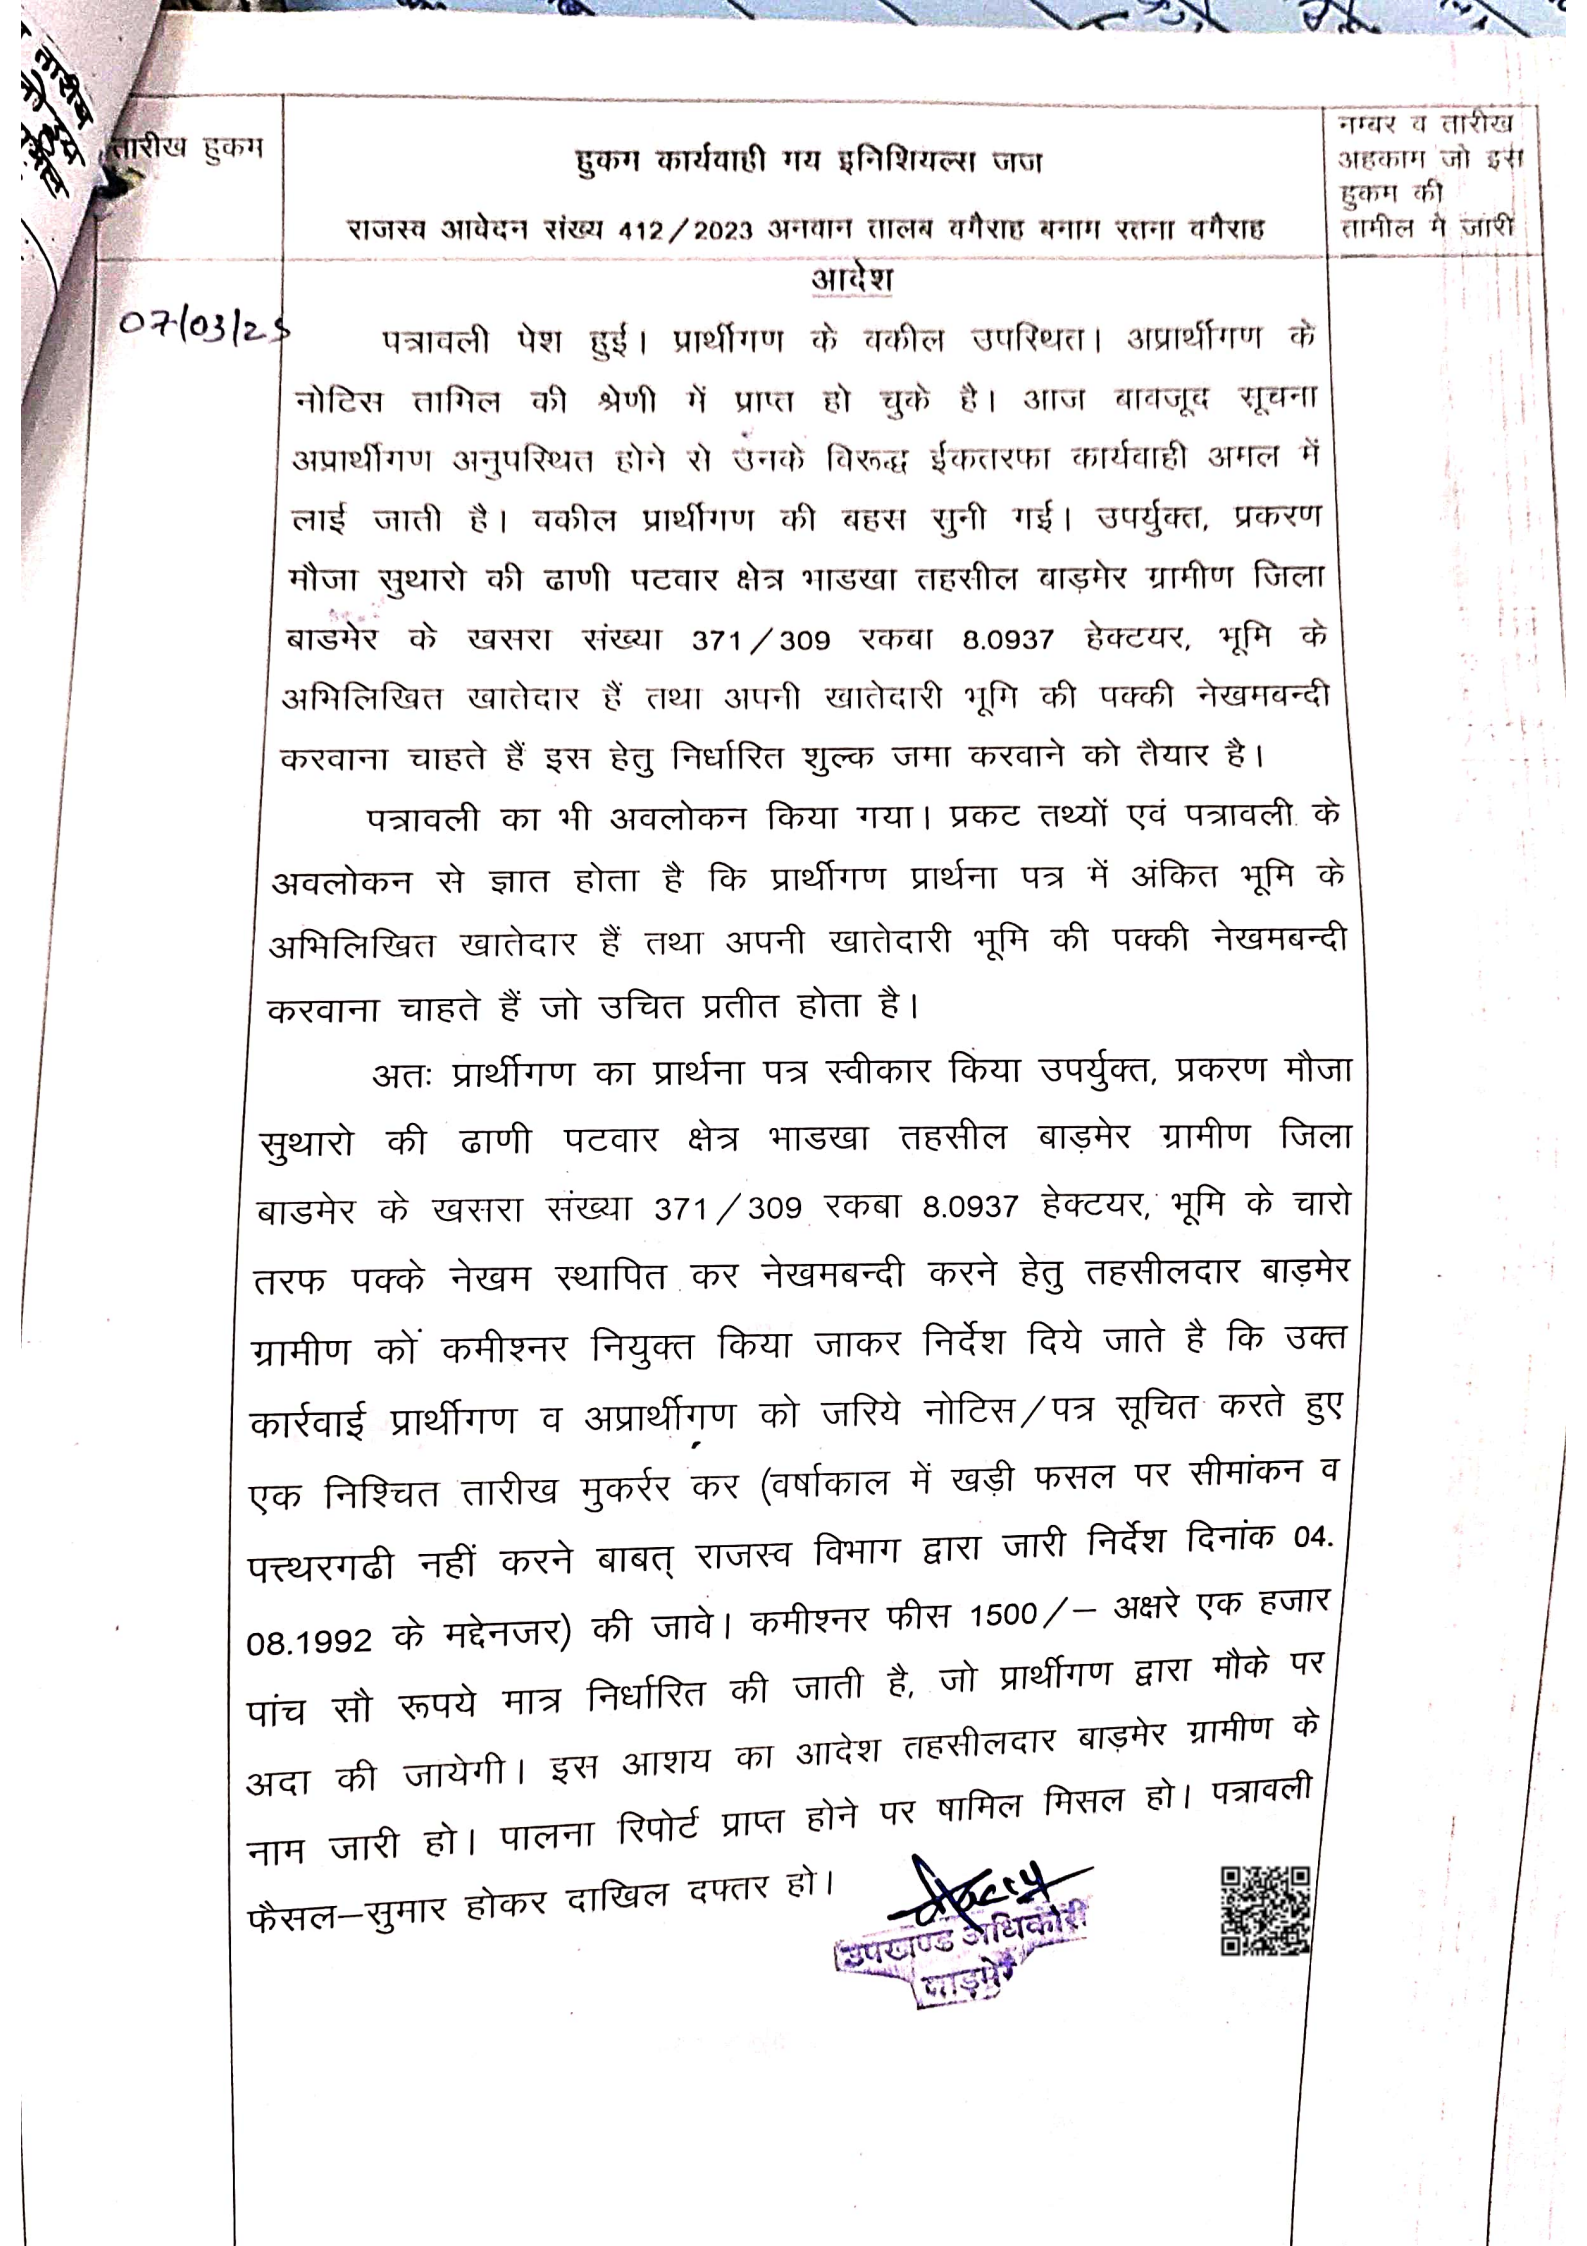 तारीख हुकम
हुकम कार्यवाही मय इनिशियल्स जज
राजस्व आवेदन संख्य 412/2023 अनवान तालब वगैराह बनाम रतना वगैराह
नम्बर व तारीख
अहकाम जो इस
हुकम की
तामील मे जारी
आदेश
07/03/25
पत्रावली पेश हुई। प्रार्थीगण के वकील उपस्थित। अप्रार्थीगण के
नोटिस तामिल की श्रेणी में प्राप्त हो चुके है। आज बावजूद सूचना
अप्रार्थीगण अनुपस्थित होने से उनके विरूद्ध ईकतरफा कार्यवाही अमल में
लाई जाती है। वकील प्रार्थीगण की बहस सुनी गई। उपर्युक्त, प्रकरण
मौजा सुथारो की ढाणी पटवार क्षेत्र भाडखा तहसील बाड़मेर ग्रामीण जिला
बाडमेर के खसरा संख्या 371/309 रकबा 8.0937 हेक्टयर, भूमि के
अभिलिखित खातेदार हैं तथा अपनी खातेदारी भूमि की पक्की नेखमबन्दी
करवाना चाहते हैं इस हेतु निर्धारित शुल्क जमा करवाने को तैयार है।
पत्रावली का भी अवलोकन किया गया। प्रकट तथ्यों एवं पत्रावली के
अवलोकन से ज्ञात होता है कि प्रार्थीगण प्रार्थना पत्र में अंकित भूमि के
अभिलिखित खातेदार हैं तथा अपनी खातेदारी भूमि की पक्की नेखमबन्दी
करवाना चाहते हैं जो उचित प्रतीत होता है।
अतः प्रार्थीगण का प्रार्थना पत्र स्वीकार किया उपर्युक्त, प्रकरण मौजा
सुथारो की ढाणी पटवार क्षेत्र भाडखा तहसील बाड़मेर ग्रामीण जिला
बाडमेर के खसरा संख्या 371/309 रकबा 8.0937 हेक्टयर, भूमि के चारो
तरफ पक्के नेखम स्थापित कर नेखमबन्दी करने हेतु तहसीलदार बाड़मेर
ग्रामीण कों कमीश्नर नियुक्त किया जाकर निर्देश दिये जाते है कि उक्त
कार्रवाई प्रार्थीगण व अप्रार्थीगण को जरिये नोटिस/पत्र सूचित करते हुए
एक निश्चित तारीख मुकर्रर कर (वर्षाकाल में खड़ी फसल पर सीमांकन व
पत्त्थरगढी नहीं करने बाबत् राजस्व विभाग द्वारा जारी निर्देश दिनांक 04.
08.1992 के मद्देनजर) की जावे। कमीश्नर फीस 1500/– अक्षरे एक हजार
पांच सौ रूपये मात्र निर्धारित की जाती है, जो प्रार्थीगण द्वारा मौके पर
अदा की जायेगी। इस आशय का आदेश तहसीलदार बाड़मेर ग्रामीण के
नाम जारी हो। पालना रिपोर्ट प्राप्त होने पर षामिल मिसल हो। पत्रावली
फैसल–सुमार होकर दाखिल दफ्तर हो।
उपखण्ड अधिकारी
बाड़मेर